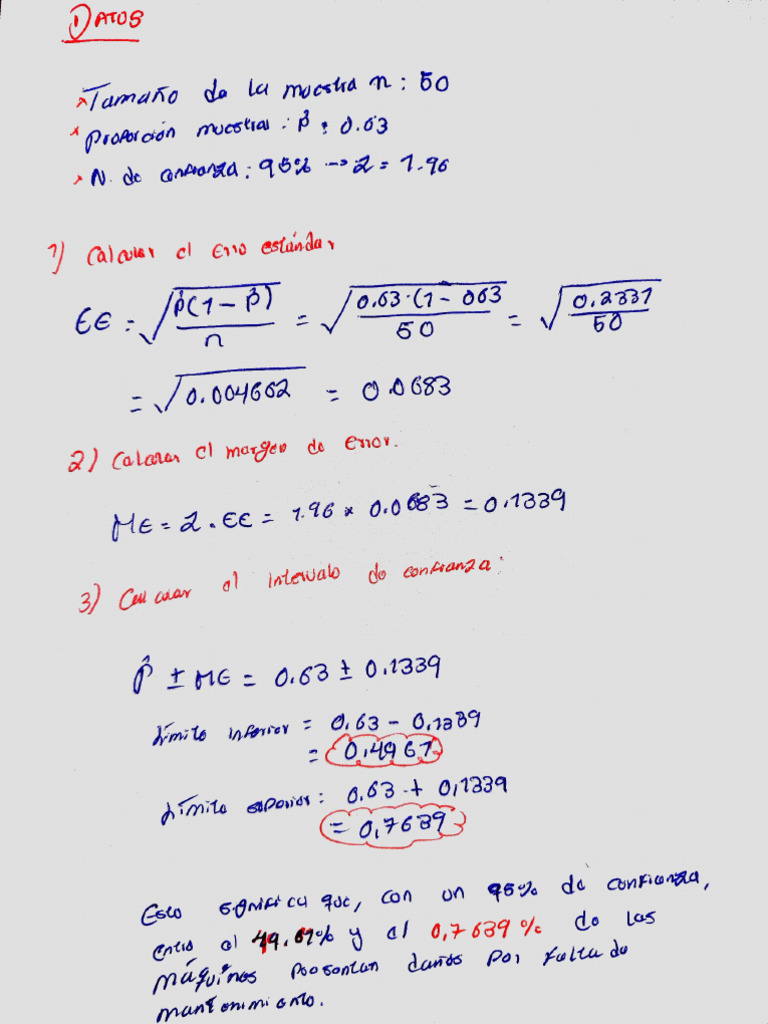 DATOS
* Tamaño de la muestra n: 50
* proporción muestral: p̂: 0.63
* N. de confianza: 95% → Z = 1.96
1) Calcular el erro estándar
EE = √(p̂(1 - p̂)/n) = √(0.63·(1 - 063/50) = √(0.2331/50)
= √0.004662 = 0.0683
2) Calcular el margen de error.
ME = Z . EE = 1.96 * 0.0683 = 0.1339
3) Calcular el intervalo de confianza:
p̂ ± ME = 0.63 ± 0.1339
Límite inferior = 0.63 - 0,1339
= 0,4961
Límite superior: 0.63 + 0,1339
= 0,7639
Esto significa que, con un 95% de confianza,
entre el 49.61% y el 0,7639% de las
máquinas presentan daños por falta de
mantenimiento.